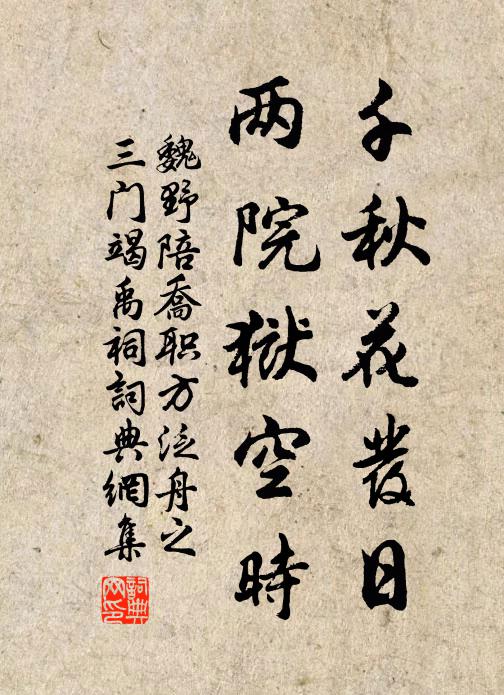 千秋花發日
两院獄空時
魏野陪喬职方泛舟之
三门竭禹祠詞典網集
詞典
网印